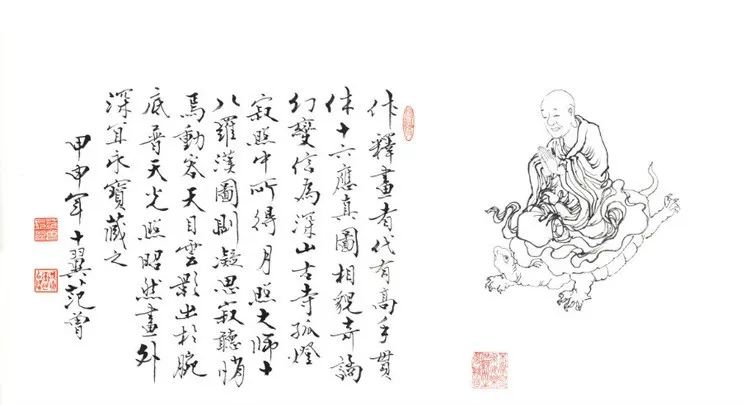 作釋畫者代有高手貫
休十六應真圖相貌奇譎
幻變信為深山古寺孤燈
寂照中所得月照大師十
八羅漢圖則凝思寂聽悄
焉動容天目雲影出於腕
底普天光照昭然畫外
深宜永寶藏之
甲申年十翼范曾